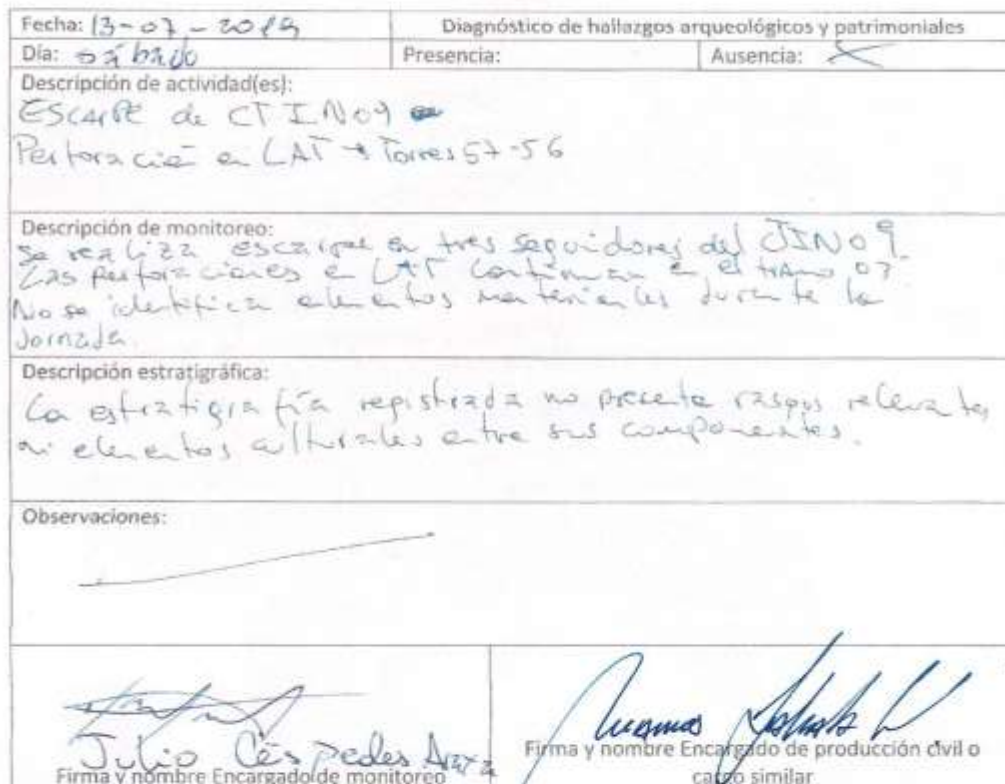 Fecha: 13-07-2019 Diagnóstico de hallazgos arqueológicos y patrimoniales
Día: sábado Presencia: Ausencia: X
Descripción de actividad(es):
Escarpe de CT IN09
Perforación en LAT → Torres 57-56
Descripción de monitoreo:
Se realiza escarpe en tres seguidores del IN09.
Las perforaciones en LAT continuan en el tramo 07
No se identifica elementos materiales durante la
Jornada.
Descripción estratigráfica:
La estratigrafía registrada no presenta rasgos relevantes
ni elementos culturales entre sus componentes.
Observaciones:
Julio Céspedes
Firma y nombre Encargado de monitoreo
Firma y nombre Encargado de producción civil o
cargo similar